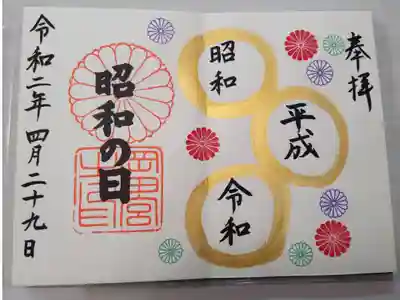 奉拝
昭和
平成
令和
昭和の日
令和二年 四月二十九日